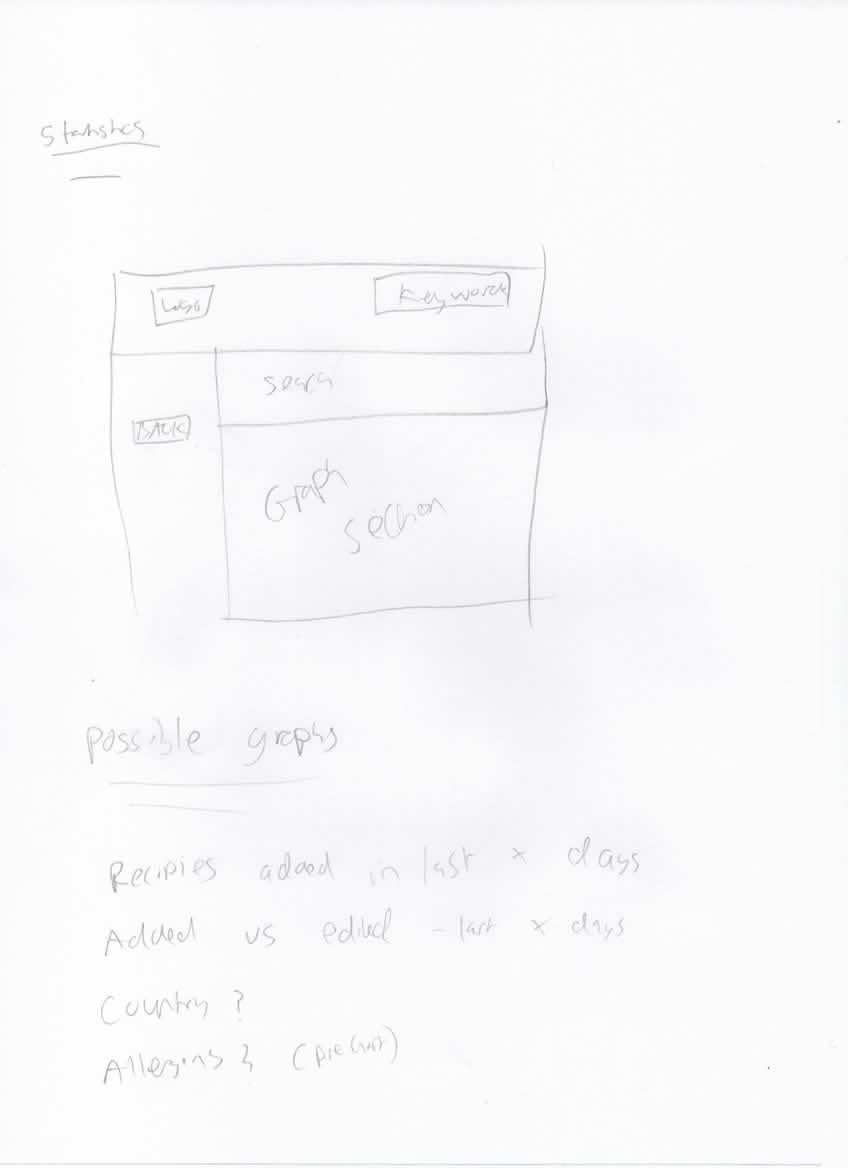 Statistics
Logo
Keyword
Search
BACK
Graph
Section
Possible graphs
Recipies added in last x days
Added vs edited - last x days
Country ?
Allergins ? (pie chart)